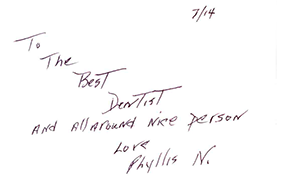 7/14
To
The
Best
Dentist
And All around Nice person
Love
Phyllis N.